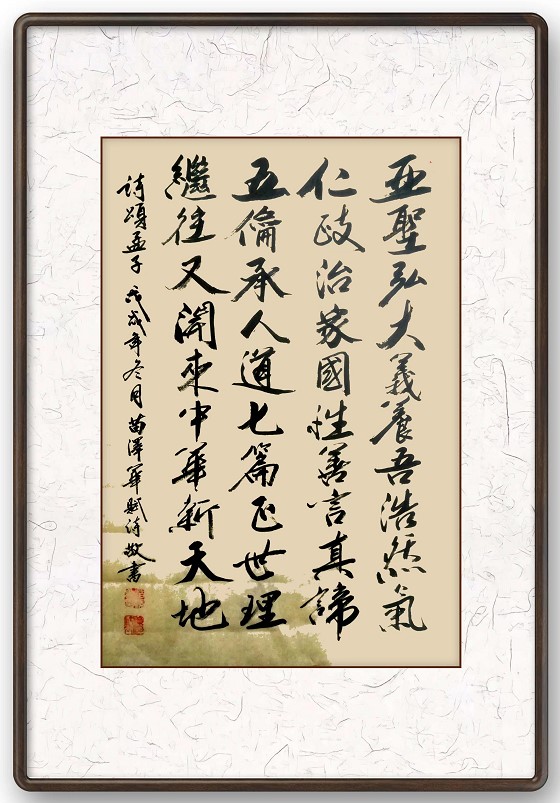 亚聖弘大義養吾浩然氣
仁政治家國性善言真諦
五倫承人道七篇正世理
繼往又開來中華新天地
詩頌孟子 戊戌年冬月苗澤華賦诗敬書